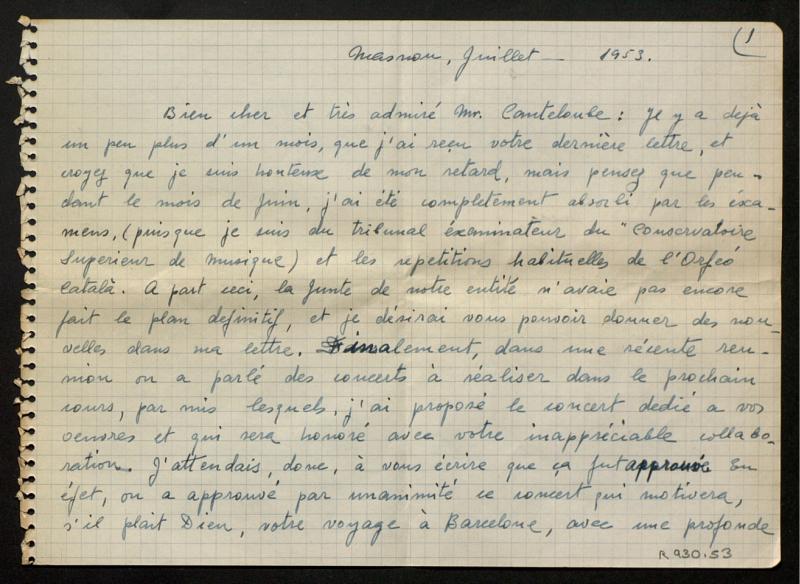 (1
Masnou, Juillet — 1953.
Bien cher et très admiré Mr. Canteloube: Je y a dejà
un peu plus d'un mois, que j'ai reçu votre dernière lettre, et
croyez que je suis honteux de mon retard, mais pensez que pen-
dant le mois de Juin, j'ai été completement absorbi par les éxa-
mens, (puisque je suis du tribunal examinateur du "Conservatoire
Superieur de Musique) et les repetitions habituelles de l'Orfeó
Català. A part ceci, la Junte de notre entité n'avaie pas encore
fait le plan definitif, et je désirai vous pouvoir donner des nou-
velles dans ma lettre. Finalement, dans une récente reu-
nion on a parlé des concerts à réaliser dans le prochain
cours, par mis lesquels, j'ai proposé le concert dedié a vos
oeuvres et qui sera honoré avec votre inappréciable collabo-
ration. J'attendais, donc, à vous écrire que ça fut approuvé En
éfet, on a approuvé par unanimité ce concert qui motivera,
s'il plait Dieu, votre voyage à Barcelone, avec une profonde
R 930.53